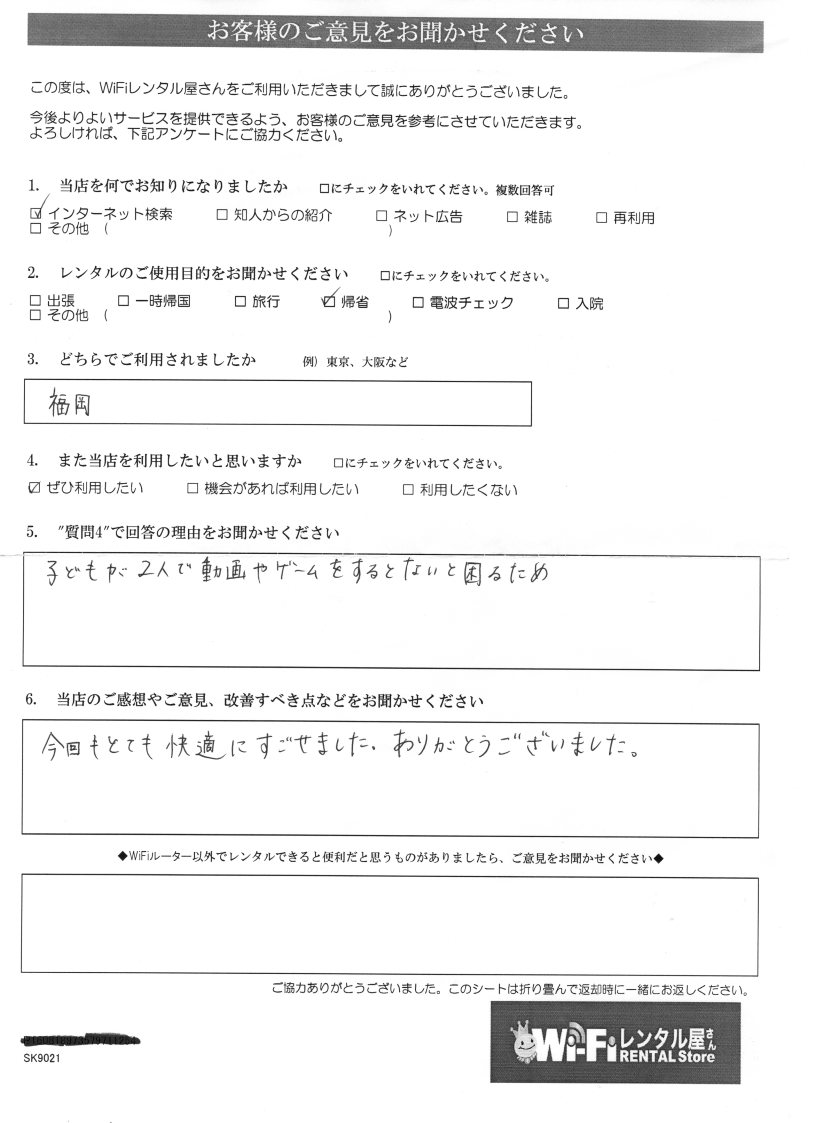 お客様のご意見をお聞かせください
この度は、WiFiレンタル屋さんをご利用いただきまして誠にありがとうございました。
今後よりよいサービスを提供できるよう、お客様のご意見を参考にさせていただきます。
よろしければ、下記アンケートにご協力ください。
1. 当店を何でお知りになりましたか □にチェックをいれてください。複数回答可
☑ インターネット検索 □ 知人からの紹介 □ ネット広告 □ 雑誌 □ 再利用
□ その他 ( )
2. レンタルのご使用目的をお聞かせください □にチェックをいれてください。
□ 出張 □ 一時帰国 □ 旅行 ☑ 帰省 □ 電波チェック □ 入院
□ その他 ( )
3. どちらでご利用されましたか 例) 東京、大阪など
福岡
4. また当店を利用したいと思いますか □にチェックをいれてください。
☑ ぜひ利用したい □ 機会があれば利用したい □ 利用したくない
5. "質問4"で回答の理由をお聞かせください
子どもが2人で動画やゲームをするとないと困るため
6. 当店のご感想やご意見、改善すべき点などをお聞かせください
今回もとても快適にすごせました。ありがとうございました。
◆WiFiルーター以外でレンタルできると便利だと思うものがありましたら、ご意見をお聞かせください◆
ご協力ありがとうございました。このシートは折り畳んで返却時に一緒にお返しください。
SK9021
Wi-Fiレンタル屋さん
RENTAL Store